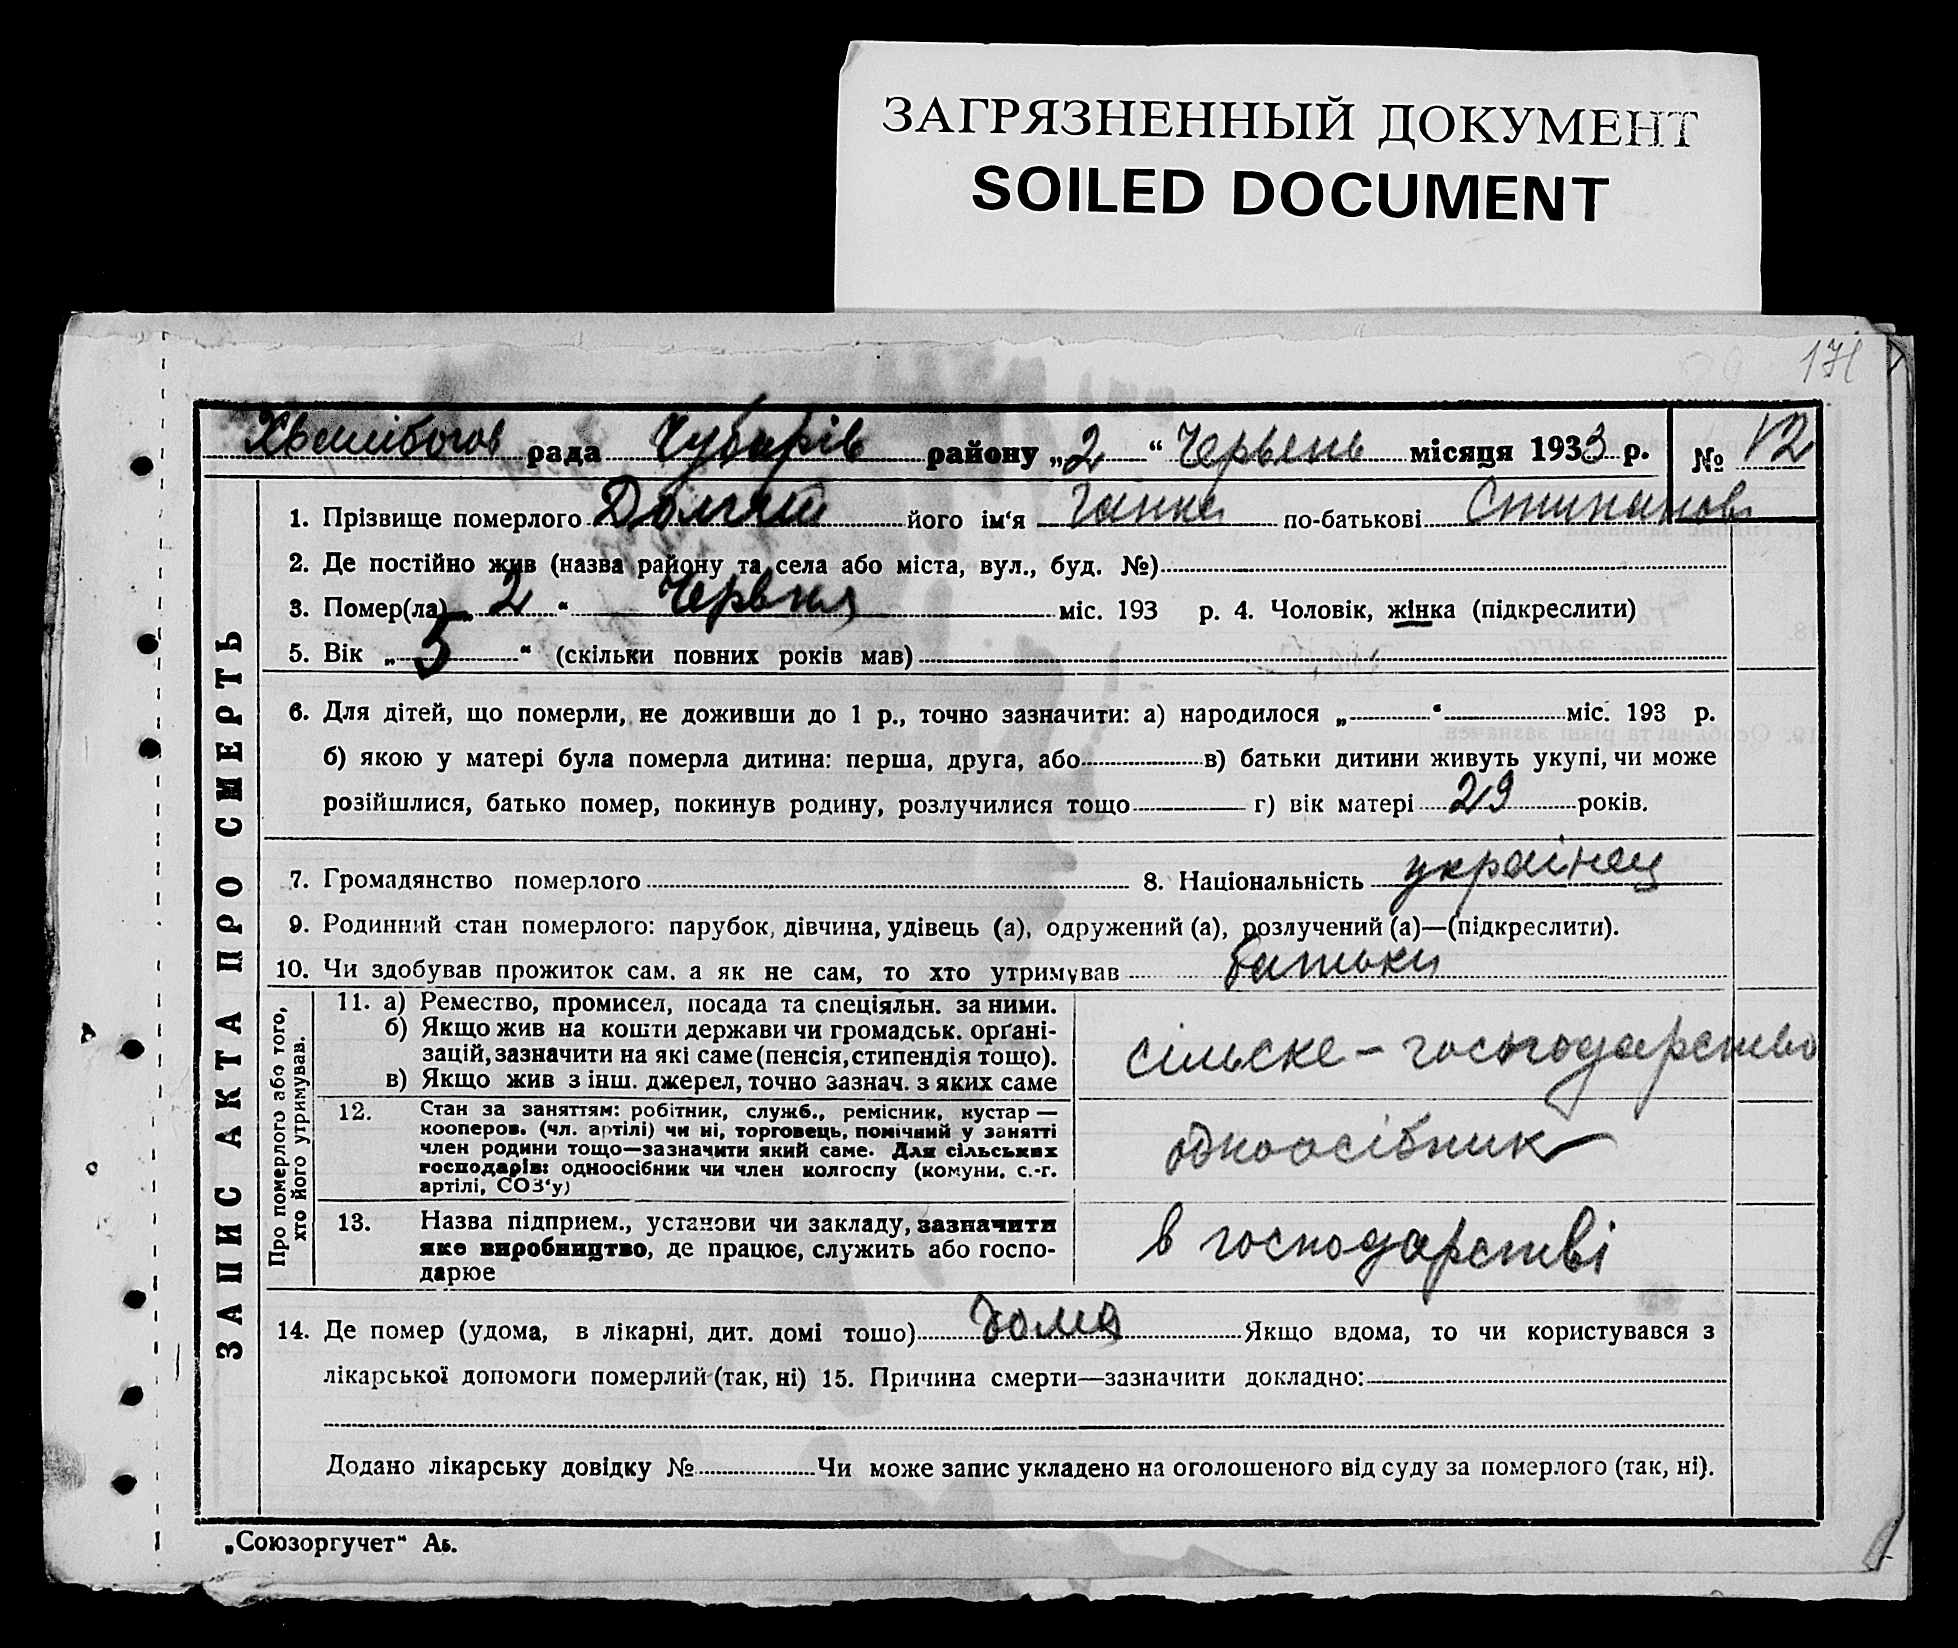 ЗАГРЯЗНЕННЫЙ ДОКУМЕНТ
SOILED DOCUMENT
171
рада Чубарів району „2“ Червень місяця 1933 р. № 12
ЗАПИС АКТА ПРО СМЕРТЬ
1. Прізвище померлого його ім'я Ганна по-батькові Стипанов
2. Де постійно жив (назва району та села або міста, вул., буд. №)
3. Помер(ла) „2“ Червня міс. 193 р. 4. Чоловік, жінка (підкреслити)
5. Вік „5“ (скільки повних років мав)
6. Для дітей, що померли, не доживши до 1 р., точно зазначити: а) народилося „ “ міс. 193 р.
б) якою у матері була померла дитина: перша, друга, або в) батьки дитини живуть укупі, чи може
розійшлися, батько помер, покинув родину, розлучилися тощо г) вік матері 29 років.
7. Громадянство померлого 8. Національність українец
9. Родинний стан померлого: парубок, дівчина, удівець (а), одружений (а), розлучений (а)—(підкреслити).
10. Чи здобував прожиток сам, а як не сам, то хто утримував батьки
Про померлого або того,
хто його утримував.
11. а) Ремество, промисел, посада та спеціяльн. за ними.
б) Якщо жив на кошти держави чи громадськ. орґані-
зацій, зазначити на які саме (пенсія, стипендія тощо).
в) Якщо жив з інш. джерел, точно зазнач. з яких саме
сільске - господарство
12. Стан за заняттям: робітник, служб., ремісник, кустар —
кооперов. (чл. артілі) чи ні, торговець, помічний у занятті
член родини тощо—зазначити який саме. Для сільських
господарів: одноосібник чи член колгоспу (комуни, с.-г.
артілі, СОЗ'у)
одноосібник
13. Назва підприєм., установи чи закладу, зазначити
яке виробництво, де працює, служить або госпо-
дарює
в господарстві
14. Де помер (удома, в лікарні, дит. домі тощо) дома Якщо вдома, то чи користувався з
лікарської допомоги померлий (так, ні) 15. Причина смерти—зазначити докладно:
Додано лікарську довідку № Чи може запис укладено на оголошеного від суду за померлого (так, ні).
„Союзоргучет“ Аь.